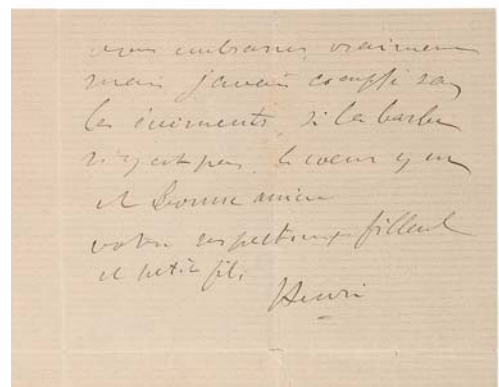 vous embrasser vraiment
mais j'avais compté sans
les évènements, si la barbe
n'y est pas, le coeur y est
et bonne année
votre respectueux filleul
et petit fils
Henri